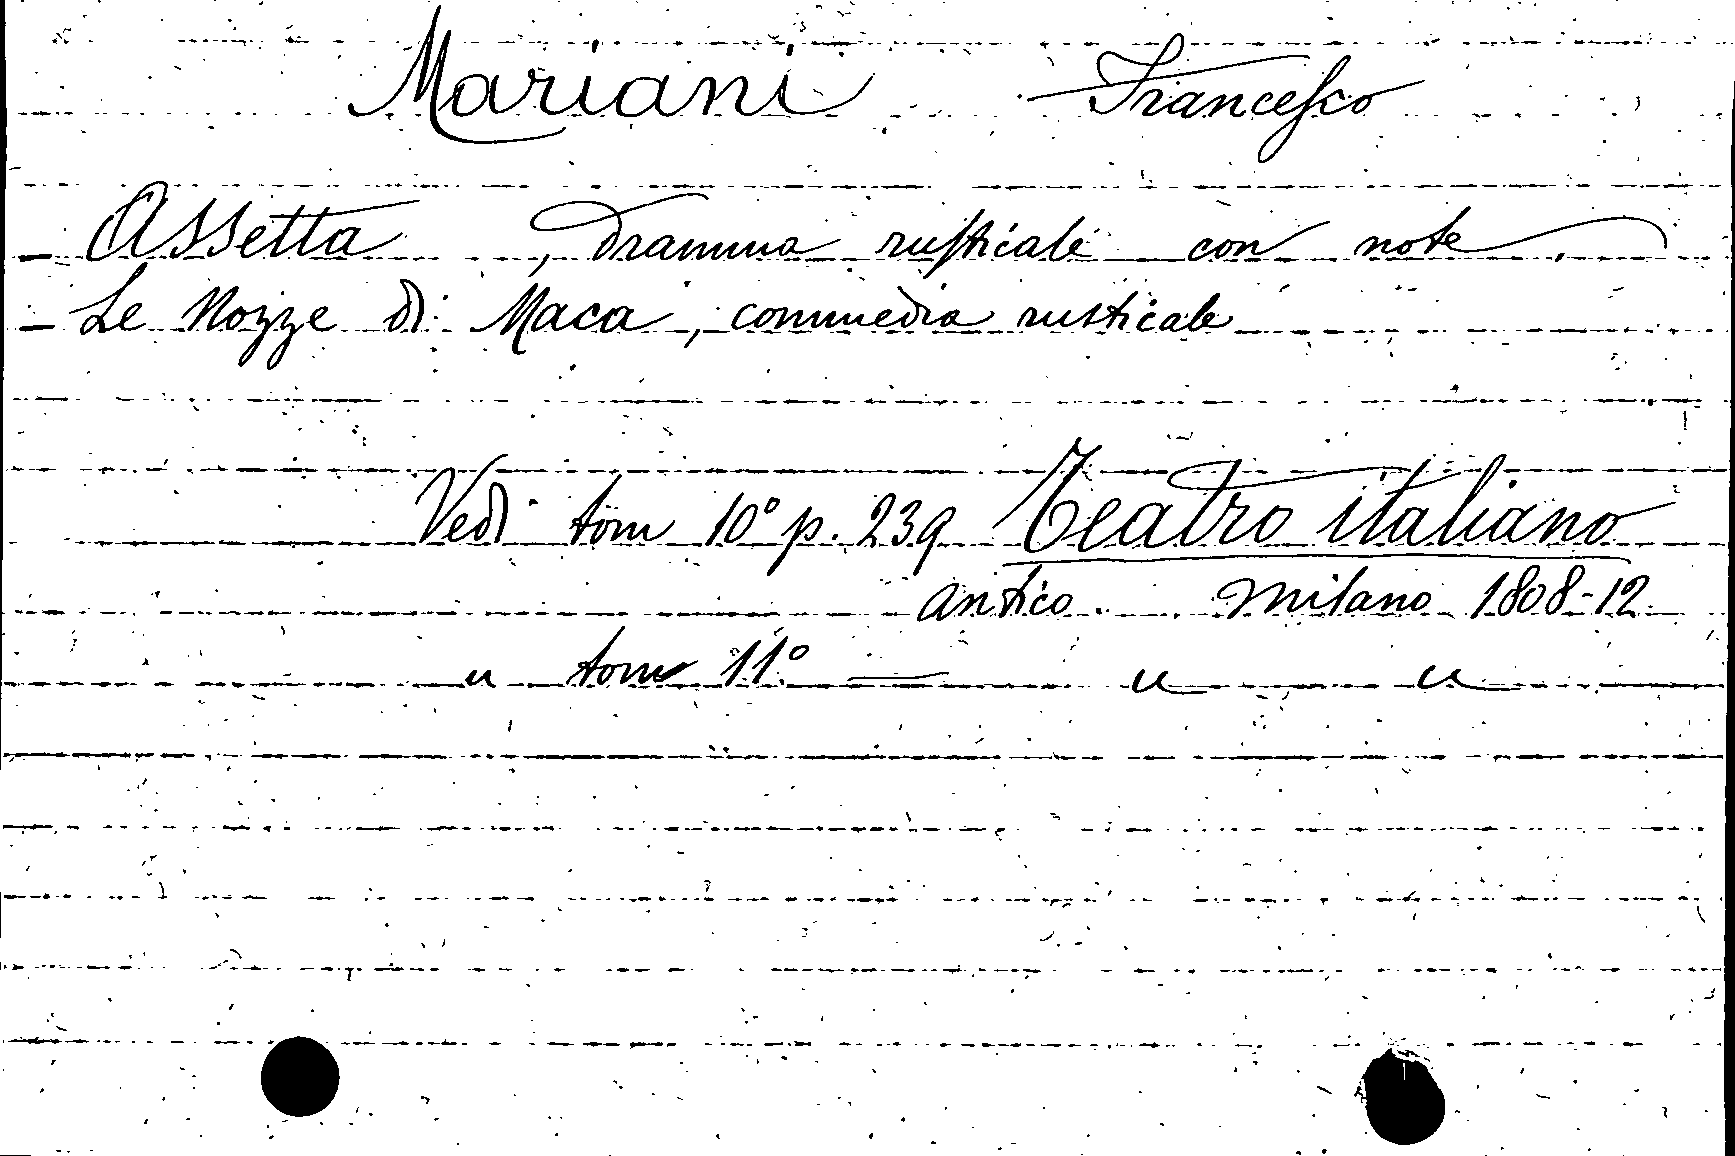 Mariani Francesco
- Assetta, dramma rusticale con note.
- Le Nozze di Maca, commedia rusticale
Vedi tom 10° p. 239 Teatro italiano
antico. Milano 1808-12
" tom 11° — " "